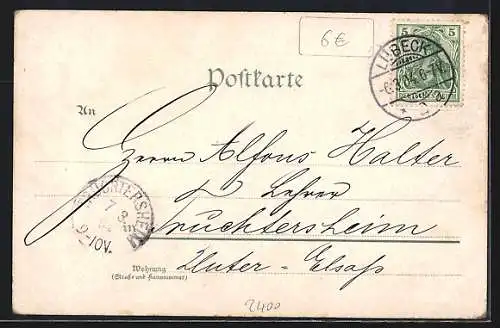 6€
5 5
LÜBECK
-6.3.04.6-7N.
* 2 b
Postkarte
An
Herrn Alfons Halter
Lehrer
Truchtersheim
Unter-Elsaß
TRUCHTERSHEIM
7 3
9-10V.
Wohnung
(Straße und Hausnummer)
2400